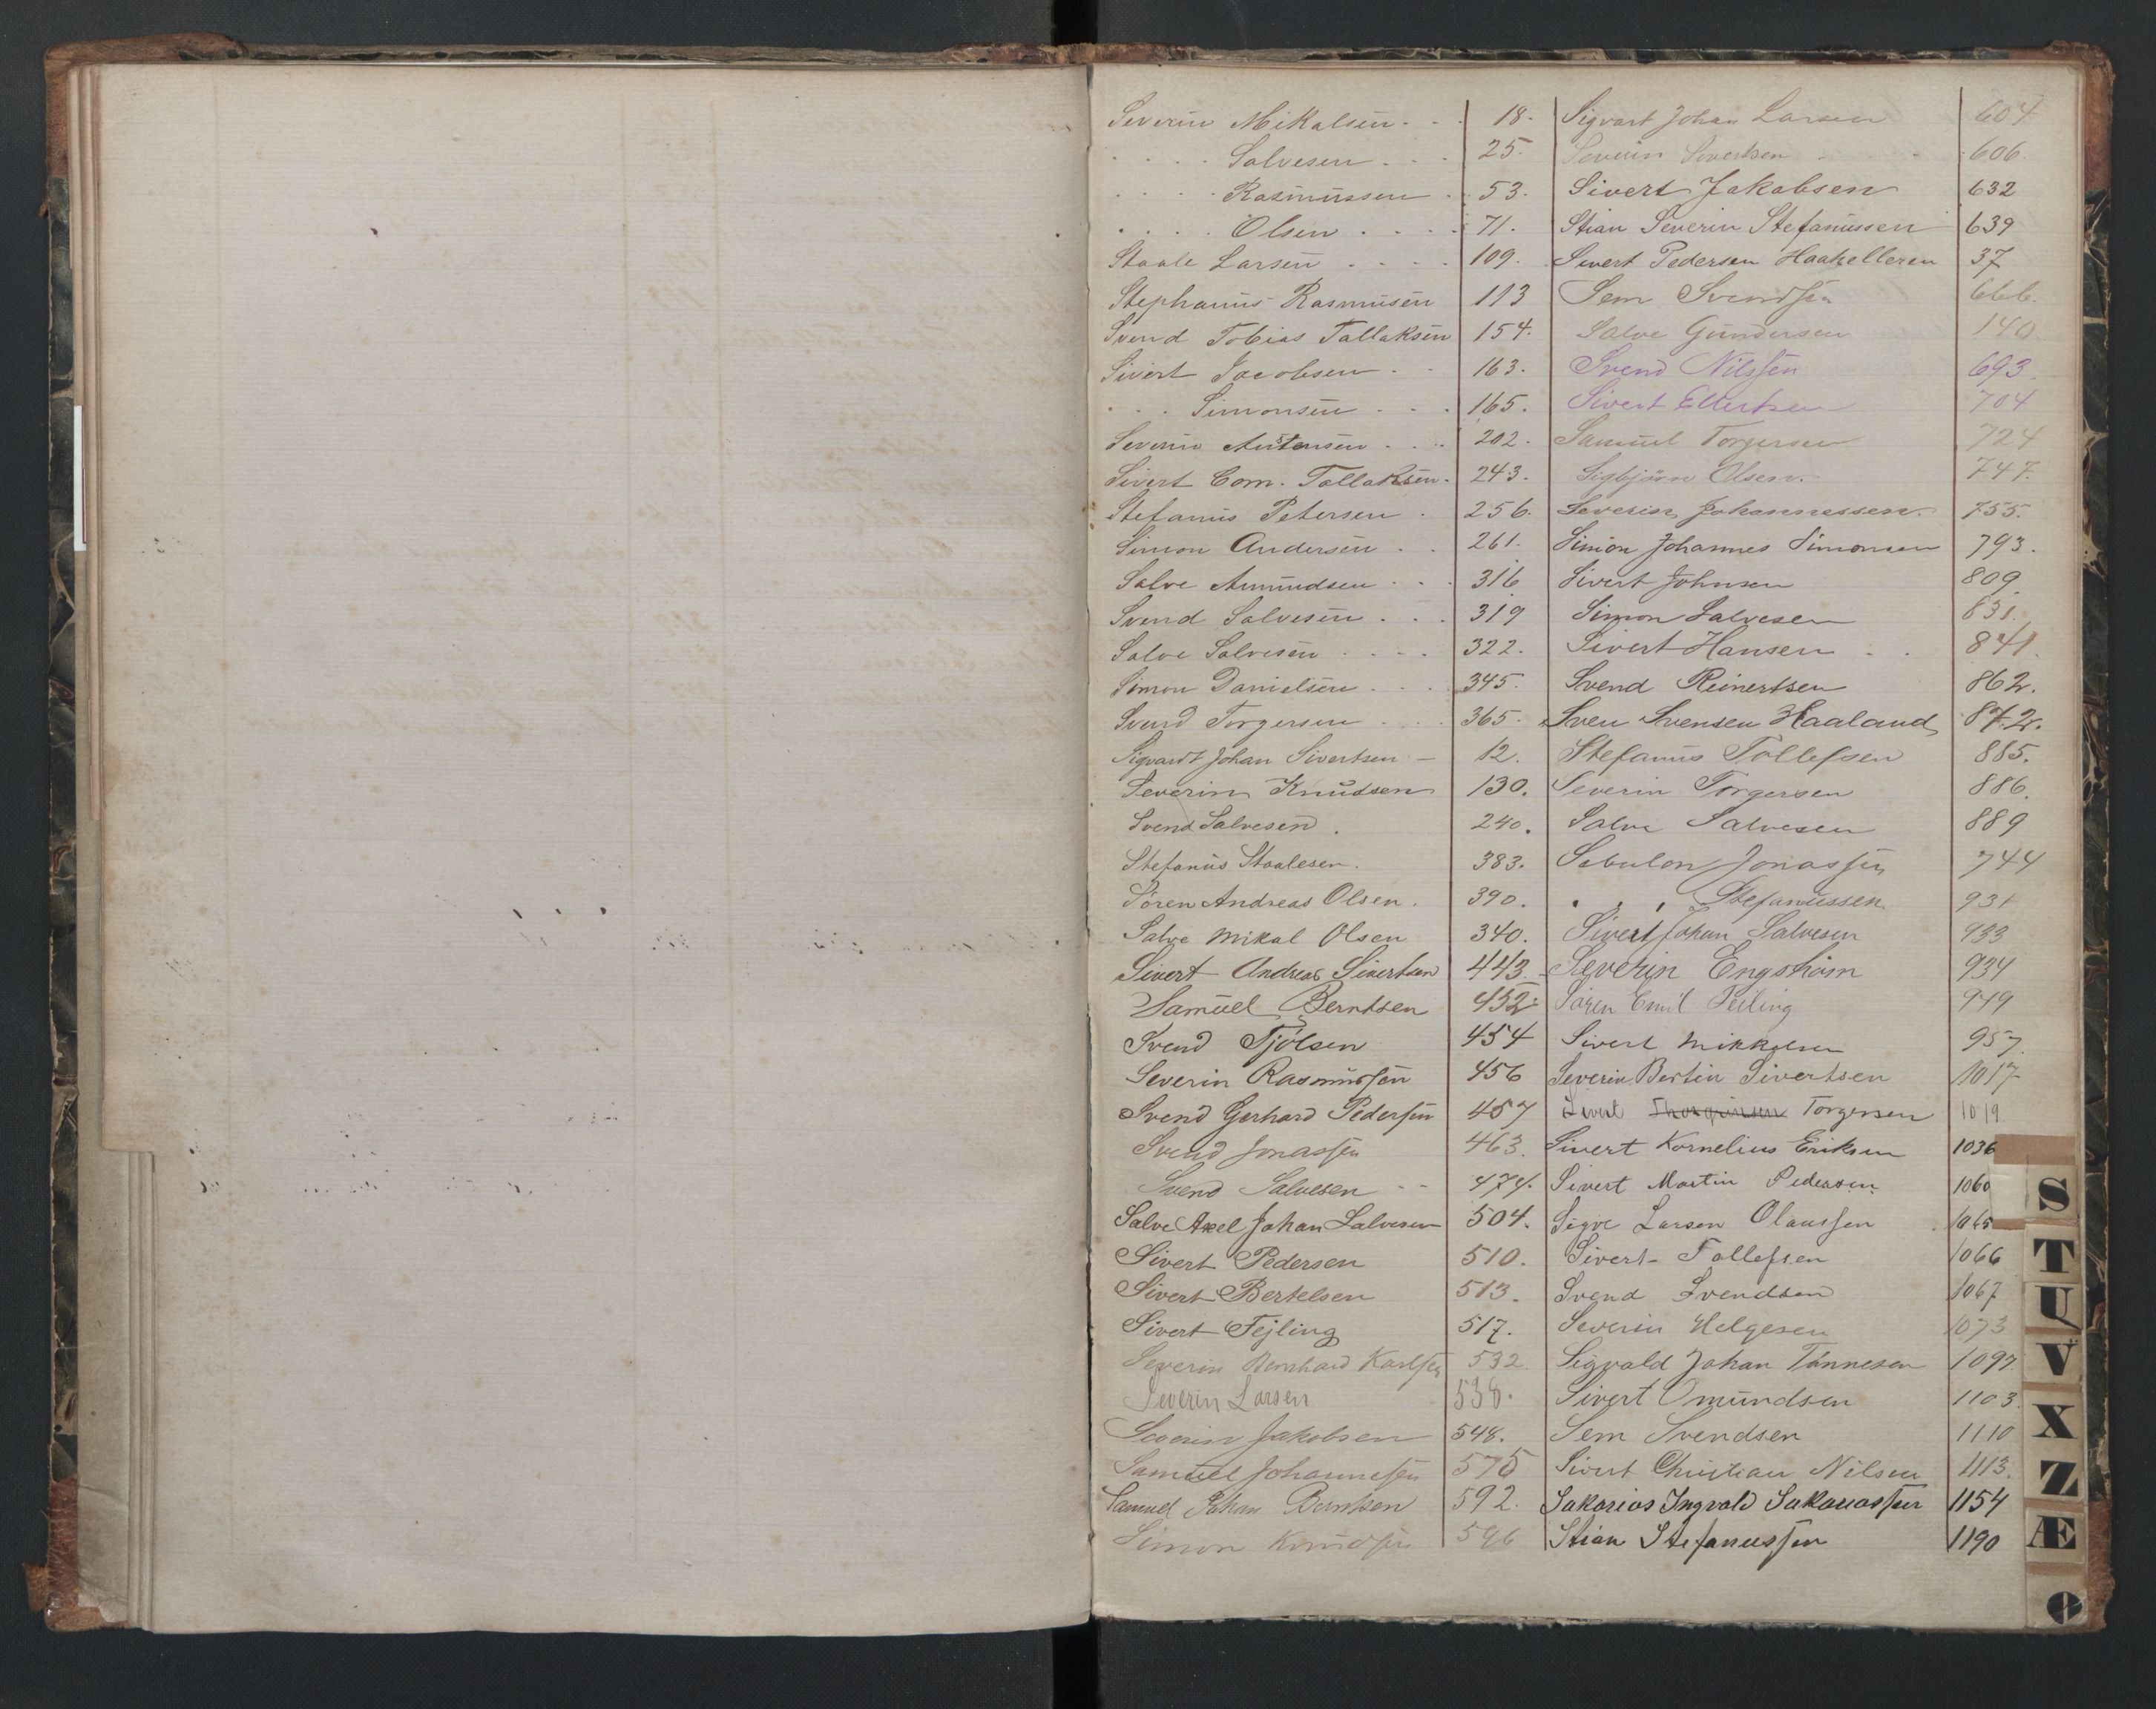 Severin Mikalsen - - 18.
- - - - Salvesen - - - 25.
- - - - Rasmussen - 53.
- - - - Olsen - - - - 71.
Staale Larsen - - - - 109.
Stephanus Rasmusen 113
Svend Tobias Tallaksen 154.
Sivert Jacobsen - - 163.
- - - Simonsen - - - 165.
Severin Austensen - - - 202.
Sivert Corn. Tallaksen - 243.
Stefanus Petersen - 256.
Simon Andersen - - 261.
Salve Amundsen - - - 316
Svend Salvesen - - - 319
Salve Salvesen - - - - 322.
Simon Danielsen - - - 345.
Svend Torgersen - - - 365.
Sigvardt Johan Sivertsen - 12.
Severin Knudsen 130.
Svend Salvesen . 240.
Stefanus Staalesen. 383.
Sören Andreas Olsen. 390.
Salve Mikal Olsen 340.
Sivert Andreas Sivertsen 443.
Samuel Berntsen 452.
Svend Tjólsen 454
Severin Rasmussen 456
Svend Gerhard Pedersen 457
Svend Jonassen 463.
Svend Salvesen - - 474.
Salve Axel Johan Salvesen 504.
Sivert Pedersen 510.
Sivert Bertelsen 513.
Sivert Fejling 517.
Severin Bernhard Karlsen 532.
Severin Larsen 538.
Severin Jakobsen 548.
Samuel Johannesen 575
Samuel Johan Berntsen 592.
Simon Knudsen 596
Sigvart Johan Larsen 604
Severin Sivertsen - - - 606.
Sivert Jakobsen 632
Stian Severin Stefanussen 639
Sivert Pedersen Haahelleren 37
Sem Svendsen 666.
Salve Gundersen 140.
Svend Nilssen 693.
Sivert Ellertsen 704
Samuel Torgersen 724
Sigbjörn Olsen. 747.
Severin Johannessen. 755.
Simon Johannes Simonsen 793.
Sivert Johnsen 809.
Simon Salvesen 831.
Sivert Hansen - - 841.
Svend Reinertsen 862.
Sven Svensen Haaland 872.
Stefanus Tollefsen 885.
Severin Torgersen 886.
Salve Salvesen 889
Sebulon Jonassen 744
" " " Stefanussen 931
Sivert Johan Salvesen 933
Severin Engstrøm 934
Sören Emil Feiling 949
Sivert Mikkelsen 957.
Severin Bertin Sivertsen 1017
Sivert Thorgrimsen Torgersen 1019.
Sivert Kornelius Eriksen 1036
Sivert Martin Pedersen 1060
Sigve Larsen Olaussen 1065
Sivert Tollefsen 1066
Svend Svendsen 1067
Severin Helgesen 1073
Sigvald Johan Tønnesen 1097
Sivert Omundsen 1103.
Sem Svendsen 1110
Sivert Christian Nilsen 1113.
Sakarias Ingvald Sakariassen 1154
Stian Stefanussen 1190
S
T
U
V
X
Z
Æ